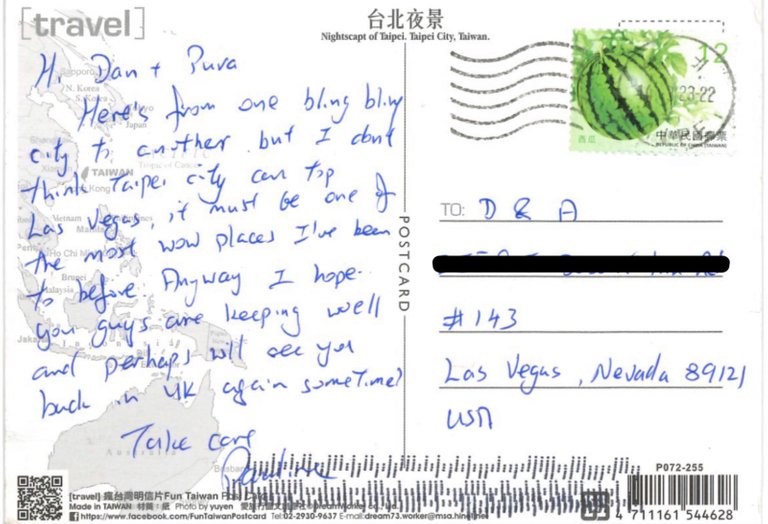 [travel]
台北夜景
Nightscapt of Taipei. Taipei City, Taiwan.
12
西瓜
中華民國郵票
REPUBLIC OF CHINA (TAIWAN)
Hi Dan +
Here's from one bling bling
city to another but I don't
think Taipei city can top
Las Vegas, it must be one of
the most wow places I've been
to before. Anyway I hope
you guys are keeping well
and perhaps will see you
back in UK again sometime!
Take care
Pauline
POSTCARD
TO: D & A
#143
Las Vegas, Nevada 89121
USA
TAIWAN
P072-255
4 711161 544628
[travel] 瘋台灣明信片Fun Taiwan
Made in TAIWAN 材質：紙 Photo by yuyen
https://www.facebook.com/FunTaiwanPostcard Tel:02-2930-9637 E-mail:dream73.worker@msa.hinet